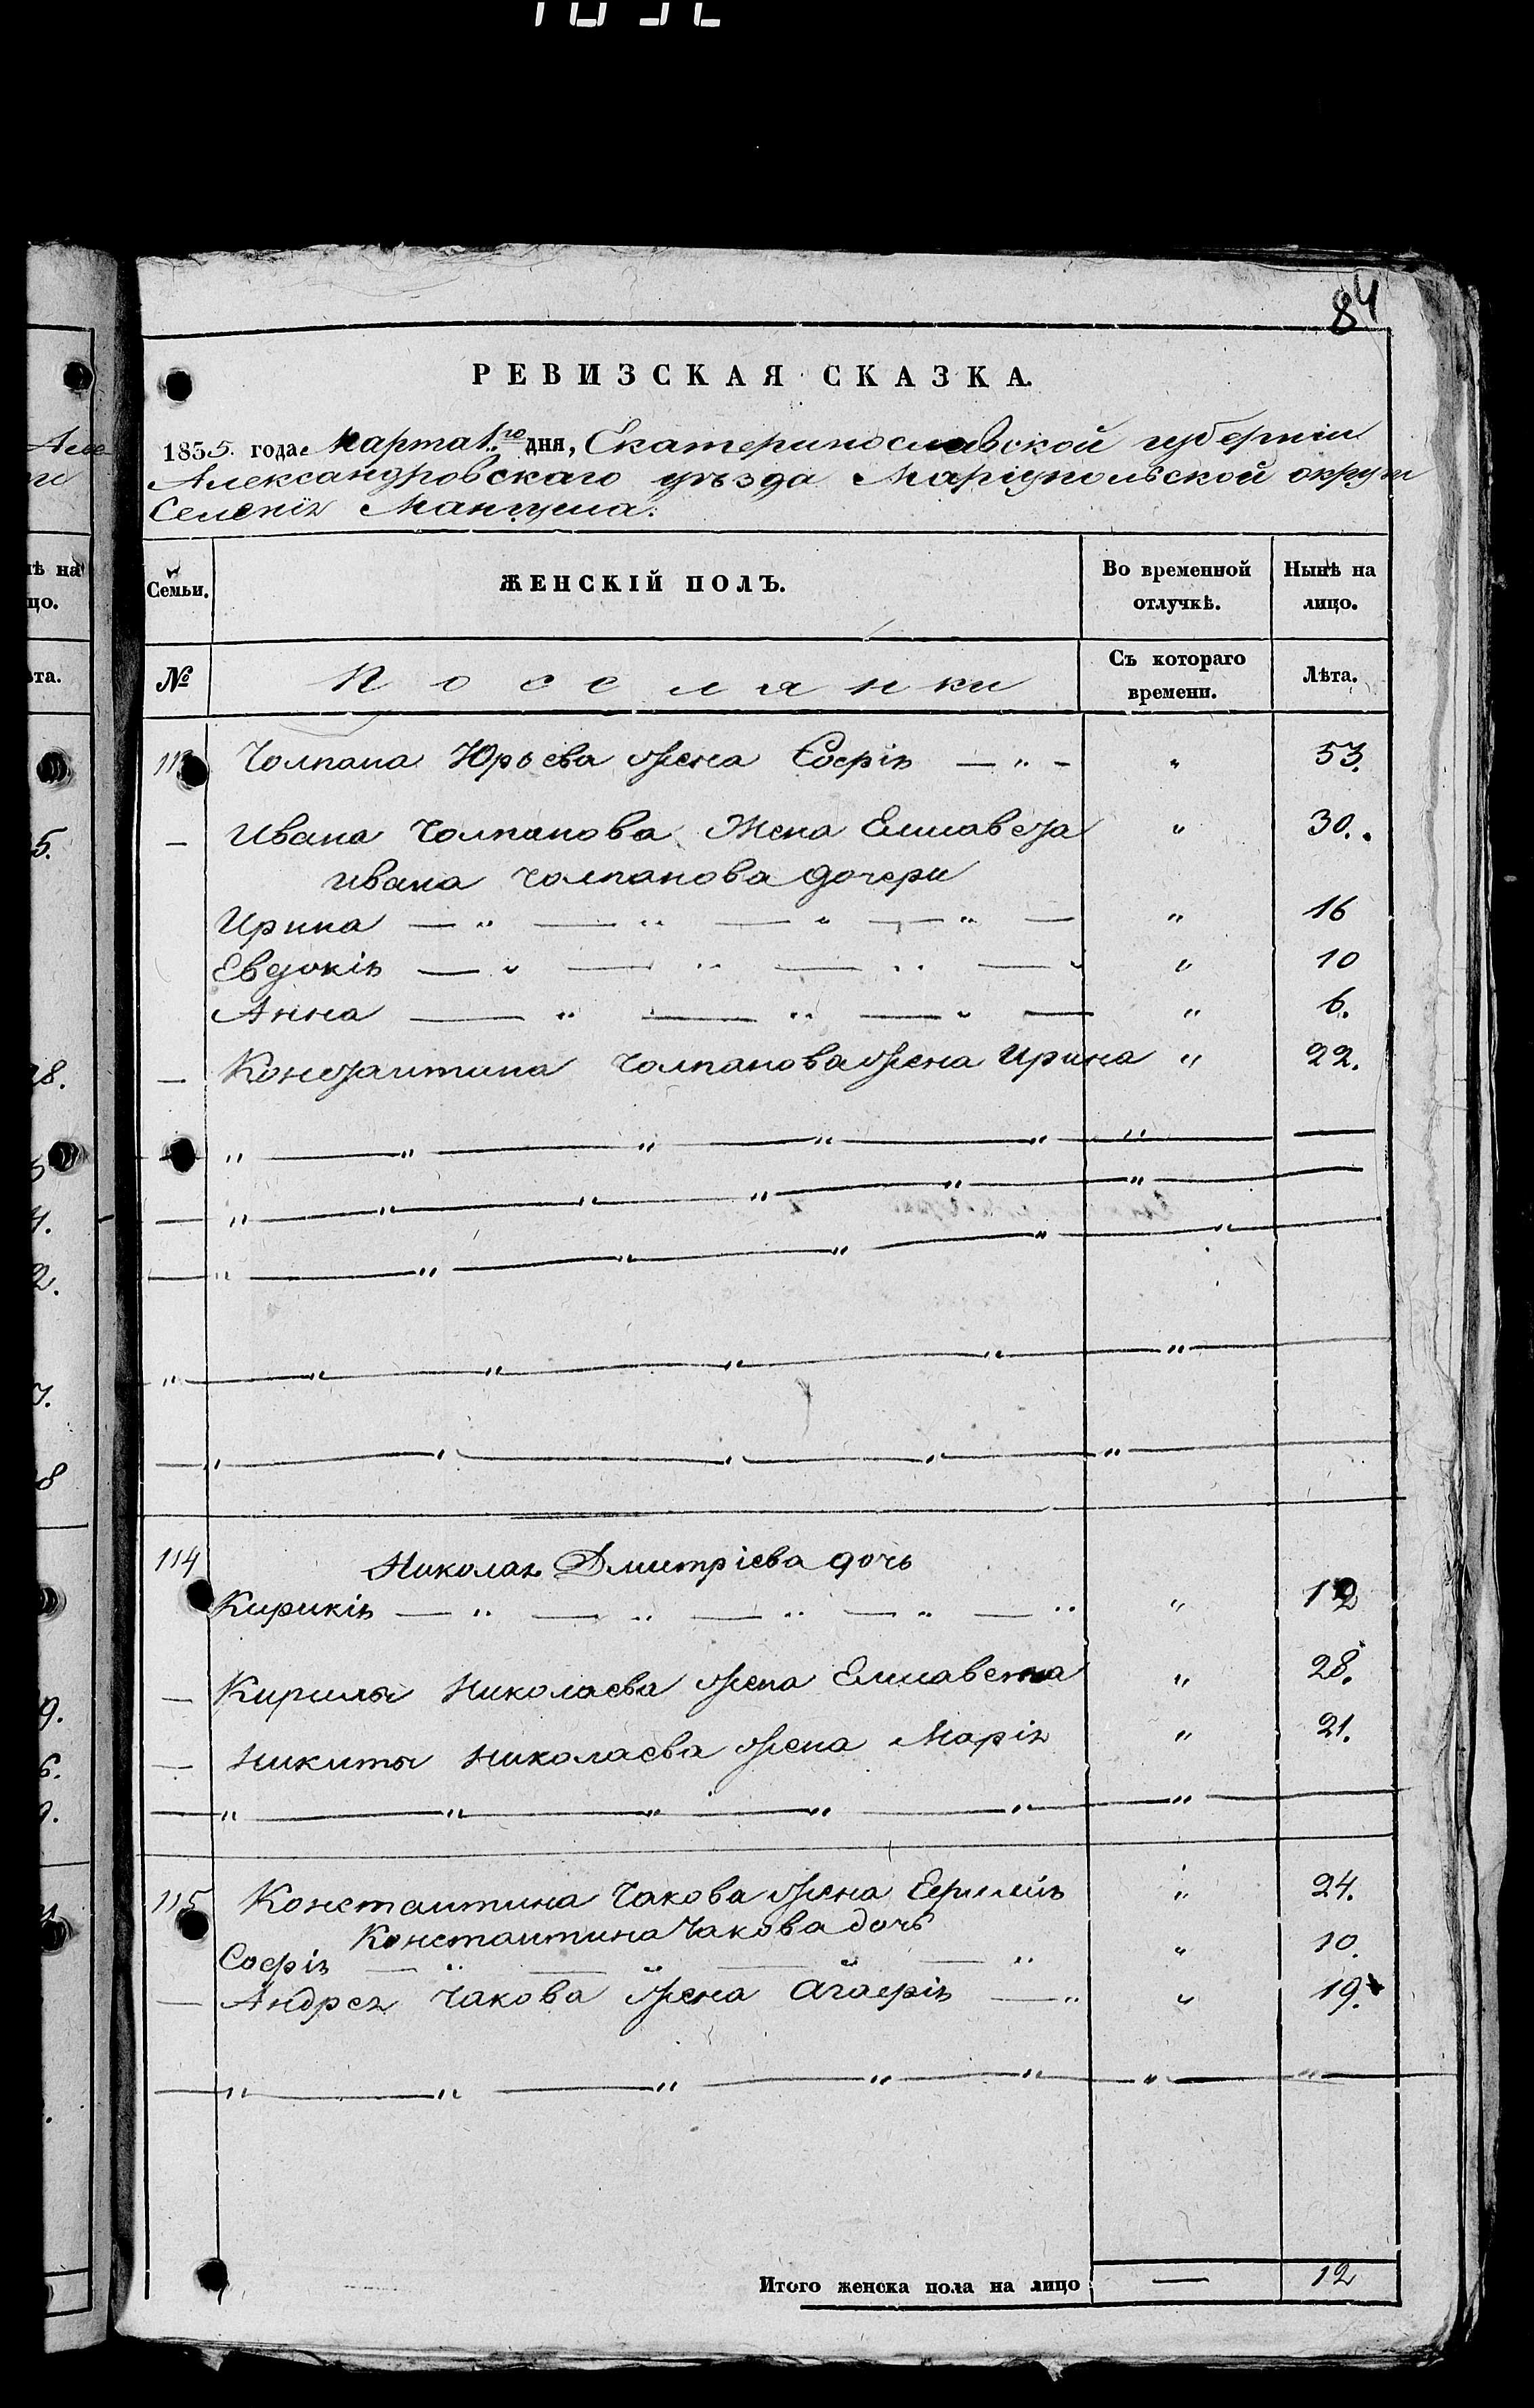 84
РЕВИЗСКАЯ СКАЗКА.
1855. года Марта 1.го дня, Екатеринославской губернiи
Александровскаго уѣзда Марiупольской округи
Селенiя Мангуша.
Семьи. ЖЕНСКІЙ ПОЛЪ. Во временной отлучкѣ. Нынѣ на лицо.
№ Поселянки Съ котораго времени. Лѣта.
113 Чолпана Юрьева жена Софiя — " — " 53.
— Ивана Чолпанова Жена Елисавета " 30.
Ивана Чолпанова дочери
Ирина — " — " — " — " — " 16
Евдокiя — " — " — " — " " 10
Анна — " — " — " — " 6.
— Константина Чолпанова жена Ирина " 22.
114 Николая Дмитрiева дочь
Кирикiя — " — " — " — " — " " 12
— Кирилы Николаева жена Елисавета " 28.
— Никиты Николаева жена Марiя " 21.
115 Константина Чакова жена " 24.
Константина Чакова дочь
Софiя — " — " — " — " " 10.
— Андрея Чакова жена Агафiя — " " 19.
Итого женска пола на лицо — 12